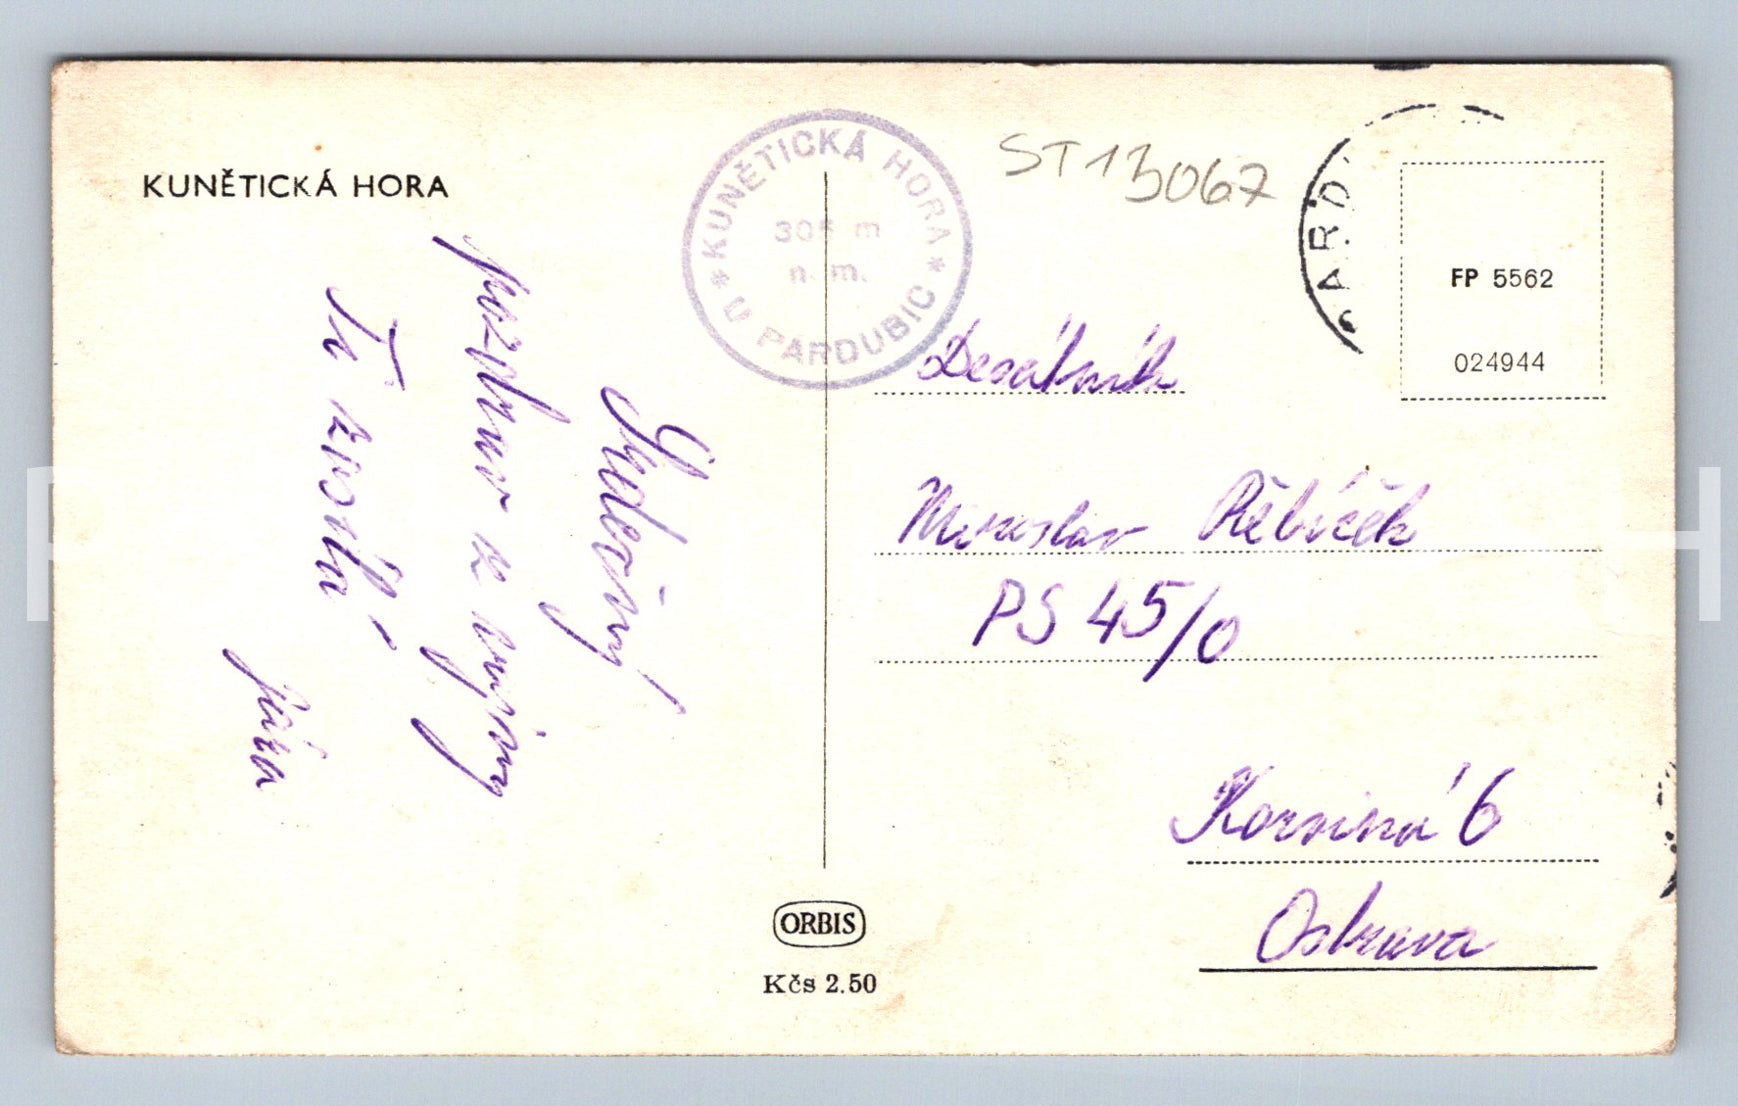 KUNĚTICKÁ HORA
Srdečný
pozdrav z výjimy
Ti zasílá
Jára
* KUNĚTICKÁ HORA *
305 m
n. m.
U PARDUBIC
ORBIS
Kčs 2.50
ST13067
PARD
FP 5562
024944
Desátník
Miroslav Řěbíček
PS 45/0
6
Ostrava